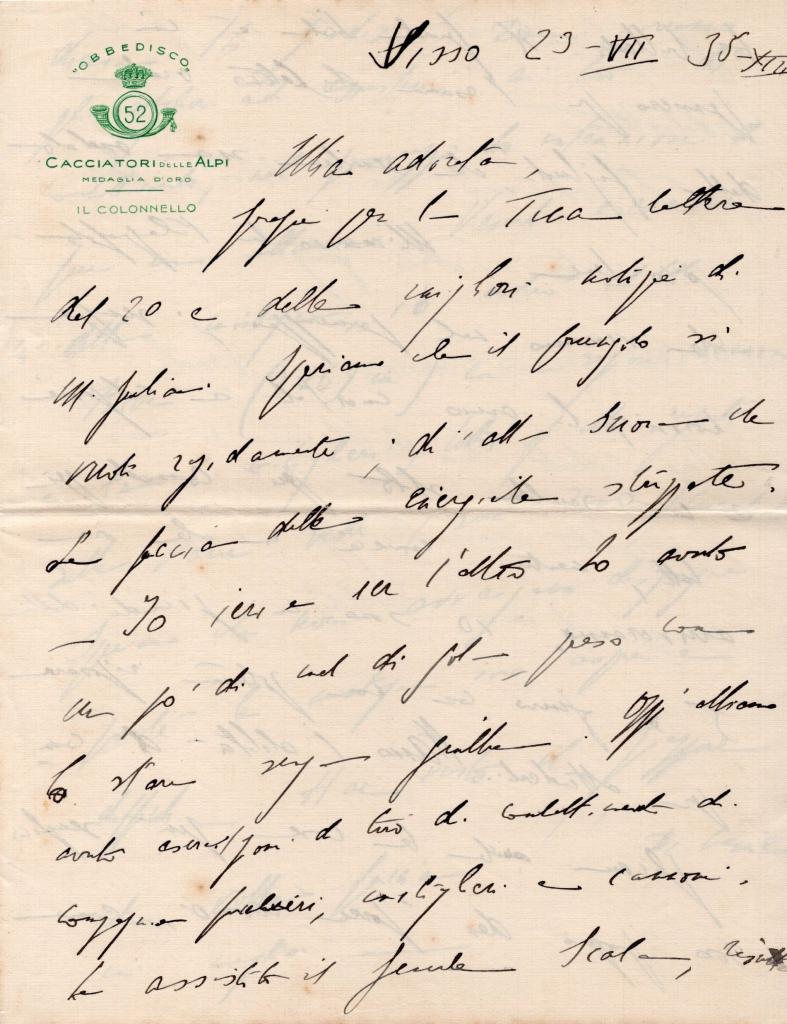 "OBBEDISCO"
52
CACCIATORI DELLE ALPI
MEDAGLIA D'ORO
IL COLONNELLO
Visso 23-VII 35-XIII
Mia adorata,
grazie per la Tua lettera
del 20 e delle migliori notizie di
M. Giulia. Speriamo che il foruncolo si
vuoti rapidamente; di' alla Suora che
Le faccia delle energiche
– Io ieri e ier l'altro ho avuto
un po' di mal di gola preso con
lo stare senza giubba. Oggi abbiamo
avuto esercitazioni di tiro di combattimento di
compagnie fucilieri, mitraglieri e cannoni.
Ha assistito il generale Scala,